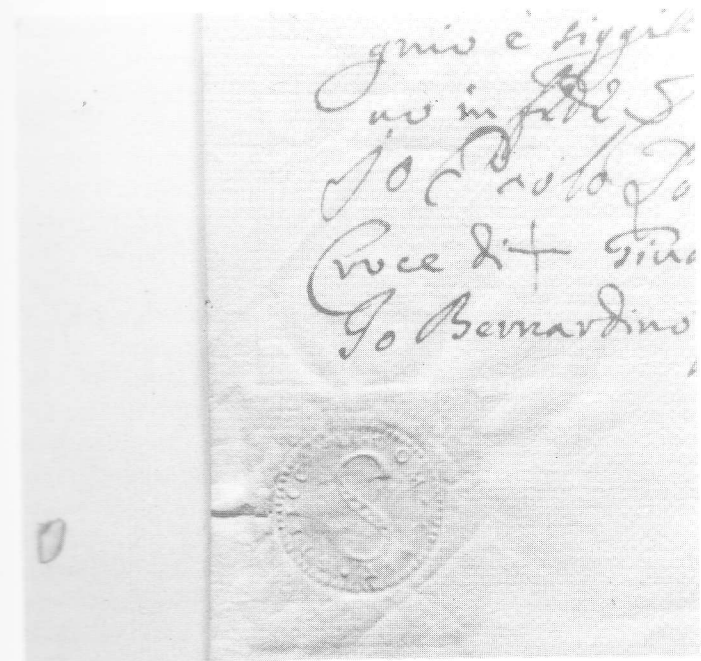 gnio e siggill
no in fede S
Io Paolo
Croce di + Gina
Io Bernardino
S